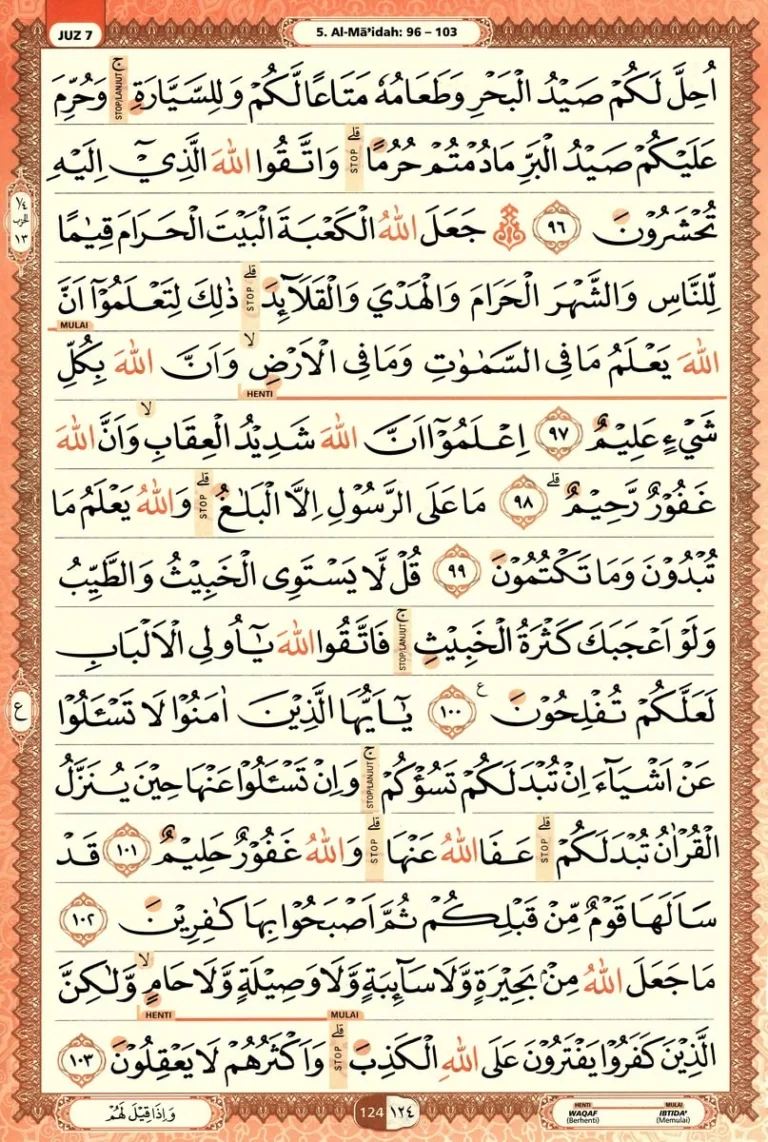 JUZ 7
5. Al-Mā'idah: 96 – 103
اُحِلَّ لَكُمْ صَيْدُ الْبَحْرِ وَطَعَامُهٗ مَتَاعًا لَّكُمْ وَلِلسَّيَّارَةِ ۚ STOP/LANJUT وَحُرِّمَ
عَلَيْكُمْ صَيْدُ الْبَرِّ مَا دُمْتُمْ حُرُمًا ۗ STOP وَاتَّقُوا اللّٰهَ الَّذِيْٓ اِلَيْهِ
تُحْشَرُوْنَ ٩٦ جَعَلَ اللّٰهُ الْكَعْبَةَ الْبَيْتَ الْحَرَامَ قِيٰمًا
١/٤ الحزب ١٣
لِّلنَّاسِ وَالشَّهْرَ الْحَرَامَ وَالْهَدْيَ وَالْقَلَاۤىِٕدَ ۗ STOP ذٰلِكَ لِتَعْلَمُوْٓا اَنَّ
MULAI
اللّٰهَ يَعْلَمُ مَا فِى السَّمٰوٰتِ وَمَا فِى الْاَرْضِۙ وَاَنَّ اللّٰهَ بِكُلِّ
HENTI
شَيْءٍ عَلِيْمٌ ٩٧ اِعْلَمُوْٓا اَنَّ اللّٰهَ شَدِيْدُ الْعِقَابِۙ وَاَنَّ اللّٰهَ
غَفُوْرٌ رَّحِيْمٌۗ ٩٨ مَا عَلَى الرَّسُوْلِ اِلَّا الْبَلٰغُ ۗ STOP وَاللّٰهُ يَعْلَمُ مَا
تُبْدُوْنَ وَمَا تَكْتُمُوْنَ ٩٩ قُلْ لَّا يَسْتَوِى الْخَبِيْثُ وَالطَّيِّبُ
وَلَوْ اَعْجَبَكَ كَثْرَةُ الْخَبِيْثِ ۚ STOP/LANJUT فَاتَّقُوا اللّٰهَ يٰٓاُولِى الْاَلْبَابِ
ع
لَعَلَّكُمْ تُفْلِحُوْنَ ع ١٠٠ يٰٓاَيُّهَا الَّذِيْنَ اٰمَنُوْا لَا تَسْـَٔلُوْا
عَنْ اَشْيَاۤءَ اِنْ تُبْدَ لَكُمْ تَسُؤْكُمْ ۚ STOP/LANJUT وَاِنْ تَسْـَٔلُوْا عَنْهَا حِيْنَ يُنَزَّلُ
الْقُرْاٰنُ تُبْدَ لَكُمْ ۗ STOP عَفَا اللّٰهُ عَنْهَا ۗ STOP وَاللّٰهُ غَفُوْرٌ حَلِيْمٌ ١٠١ قَدْ
سَاَلَهَا قَوْمٌ مِّنْ قَبْلِكُمْ ثُمَّ اَصْبَحُوْا بِهَا كٰفِرِيْنَ ١٠٢
مَا جَعَلَ اللّٰهُ مِنْۢ بَحِيْرَةٍ وَّلَا سَاۤىِٕبَةٍ وَّلَا وَصِيْلَةٍ وَّلَا حَامٍۙ وَّلٰكِنَّ
MULAI HENTI
الَّذِيْنَ كَفَرُوْا يَفْتَرُوْنَ عَلَى اللّٰهِ الْكَذِبَ ۗ STOP وَاَكْثَرُهُمْ لَا يَعْقِلُوْنَ ١٠٣
وَاِذَا قِيْلَ لَهُمْ
124 ١٢٤
HENTI WAQAF (Berhenti)
MULAI IBTIDA' (Memulai)